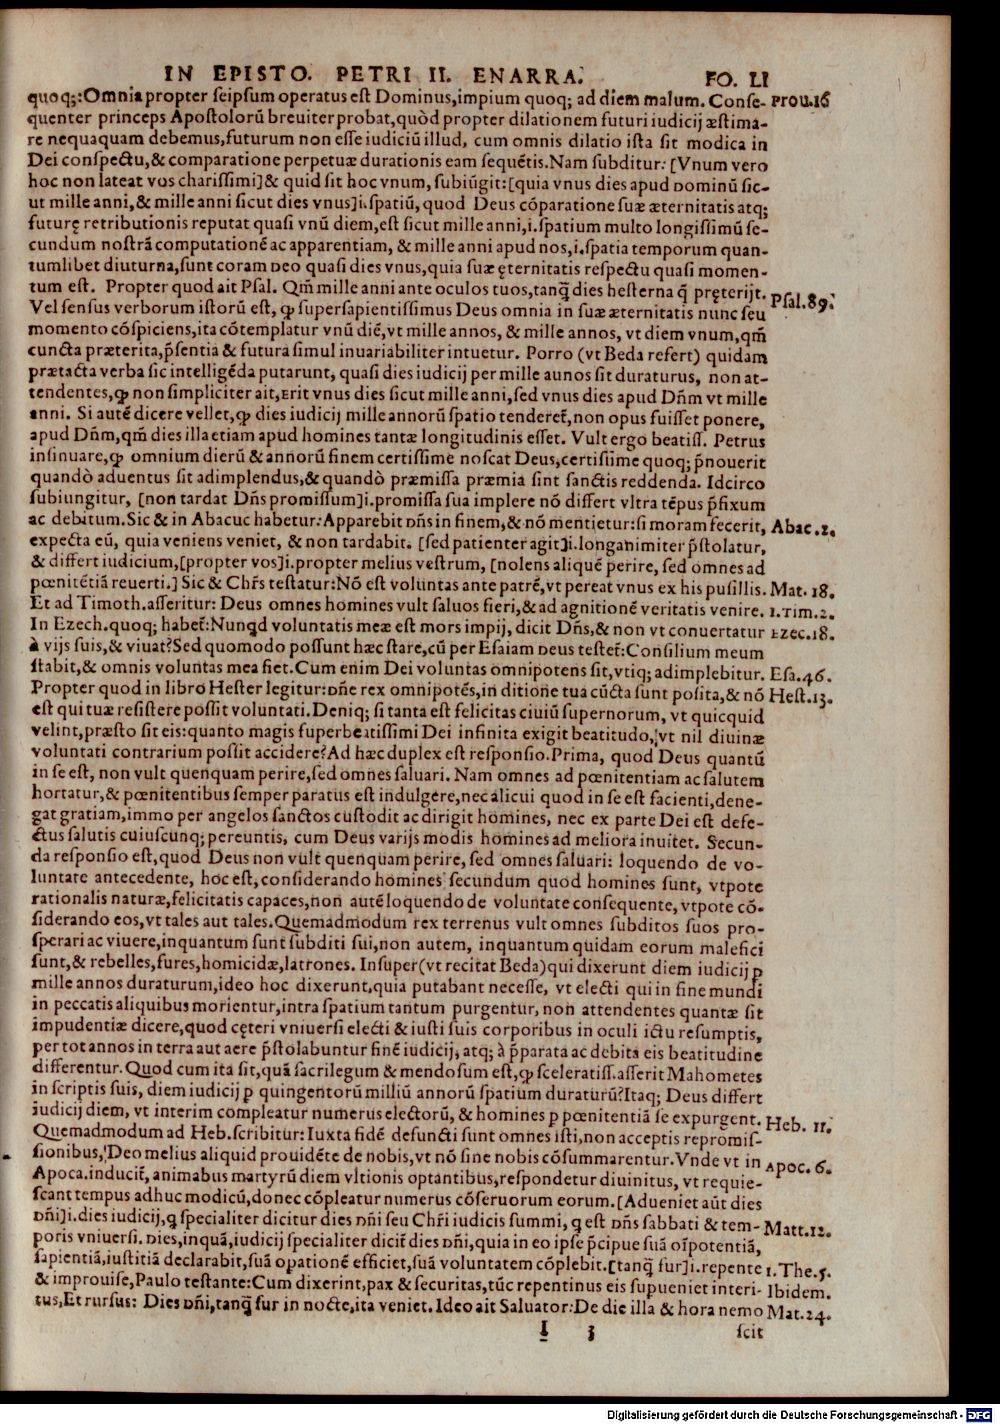 IN EPISTO. PETRI II. ENARRA. FO. LI
quoq;:Omnia propter seipsum operatus est Dominus,impium quoq; ad diem malum. Conse- prou.16
quenter princeps Apostolorū breuiter probat,quòd propter dilationem futuri iudicij æstima-
re nequaquam debemus,futurum non esse iudiciū illud, cum omnis dilatio ista sit modica in
Dei conspectu,& comparatione perpetuæ durationis eam sequētis.Nam subditur: [Vnum vero
hoc non lateat vos charissimi]& quid sit hoc vnum, subiūgit:[quia vnus dies apud Dominū sic-
ut mille anni,& mille anni sicut dies vnus]i.spatiū, quod Deus cōparatione suæ æternitatis atq;
futurę retributionis reputat quasi vnū diem,est sicut mille anni,i.spatium multo longissimū se-
cundum nostrā computationē ac apparentiam, & mille anni apud nos,i.spatia temporum quan-
tumlibet diuturna,sunt coram Deo quasi dies vnus,quia suæ ęternitatis respectu quasi momen-
tum est. Propter quod ait Psal. Qm̄ mille anni ante oculos tuos,tanq̄ dies hesterna q̄ pręterijt. Psal.89.
Vel sensus verborum istorū est, ꝙ supersapientissimus Deus omnia in suæ æternitatis nunc seu
momento cōspiciens,ita cōtemplatur vnū diē,vt mille annos, & mille annos, vt diem vnum,qm̄
cuncta præterita,p̄sentia & futura simul inuariabiliter intuetur. Porro (vt Beda refert) quidam
prætacta verba sic intelligēda putarunt, quasi dies iudicij per mille aunos sit duraturus, non at-
tendentes,ꝙ non simpliciter ait,Erit vnus dies sicut mille anni,sed vnus dies apud Dn̄m vt mille
anni. Si autē dicere vellet,ꝙ dies iudicij mille annorū spatio tenderet̄,non opus fuisset ponere,
apud Dn̄m,qm̄ dies illa etiam apud homines tantæ longitudinis esset. Vult ergo beatiss. Petrus
insinuare,ꝙ omnium dierū & annorū finem certissime noscat Deus,certisiime quoq; p̄nouerit
quandò aduentus sit adimplendus,& quandò præmissa præmia sint sanctis reddenda. Idcirco
subiungitur, [non tardat Dn̄s promissum]i.promissa sua implere nō differt vltra tēpus p̄fixum
ac debitum.Sic & in Abacuc habetur:Apparebit Dn̄s in finem,& nō mentietur:si moram fecerit, Abac.2.
expecta eū, quia veniens veniet, & non tardabit. [sed patienter agit]i.longanimiter p̄stolatur,
& differt iudicium,[propter vos]i.propter melius vestrum, [nolens aliquē perire, sed omnes ad
pœnitētiā reuerti.] Sic & Chr̄s testatur:Nō est voluntas ante patrē,vt pereat vnus ex his pusillis. Mat. 18.
Et ad Timoth.asseritur: Deus omnes homines vult saluos fieri,& ad agnitionē veritatis venire. 1.Tim.2.
In Ezech.quoq; habet̄:Nunqd voluntatis meæ est mors impij, dicit Dn̄s,& non vt conuertatur Ezec.18.
à vijs suis,& viuat?Sed quomodo possunt hæc stare,cū per Esaiam Deus testet̄:Consilium meum
stabit,& omnis voluntas mea fiet.Cum enim Dei voluntas omnipotens sit,vtiq; adimplebitur. Esa.46.
Propter quod in libro Hester legitur:Dn̄e rex omnipotēs,in ditione tua cūcta sunt posita,& nō Hest.13.
est qui tuæ resistere possit voluntati.Deniq; si tanta est felicitas ciuiū supernorum, vt quicquid
velint,præsto sit eis:quanto magis superbeatissimi Dei infinita exigit beatitudo,vt nil diuinæ
voluntati contrarium possit accidere?Ad hæc duplex est responsio.Prima, quod Deus quantū
in se est, non vult quenquam perire,sed omnes saluari. Nam omnes ad pœnitentiam ac salutem
hortatur,& pœnitentibus semper paratus est indulgere,nec alicui quod in se est facienti,dene-
gat gratiam,immo per angelos sanctos custodit ac dirigit homines, nec ex parte Dei est defe-
ctus salutis cuiuscunq; pereuntis, cum Deus varijs modis homines ad meliora inuitet. Secun-
da responsio est,quod Deus non vult quenquam perire, sed omnes saluari: loquendo de vo-
luntate antecedente, hoc est,considerando homines secundum quod homines sunt, vtpote
rationalis naturæ,felicitatis capaces,non autē loquendo de voluntate consequente,vtpote cō-
siderando eos,vt tales aut tales.Quemadmodum rex terrenus vult omnes subditos suos pro-
sperari ac viuere,inquantum sunt subditi sui,non autem, inquantum quidam eorum malefici
sunt,& rebelles,fures,homicidæ,latrones. Insuper(vt recitat Beda)qui dixerunt diem iudicij p
mille annos duraturum,ideo hoc dixerunt,quia putabant necesse, vt electi qui in fine mundi
in peccatis aliquibus morientur,intra spatium tantum purgentur, non attendentes quantæ sit
impudentiæ dicere,quod cęteri vniuersi electi & iusti suis corporibus in oculi ictu resumptis,
per tot annos in terra aut aere p̄stolabuntur finē iudicij, atq; à p̄parata ac debita eis beatitudine
differentur.Quod cum ita sit,quā sacrilegum & mendosum est,ꝙ sceleratiss.asserit Mahometes
in scriptis suis, diem iudicij p quingentorū milliū annorū spatium duraturū?Itaq; Deus differt
iudicij diem, vt interim compleatur numerus electorū, & homines p pœnitentiā se expurgent. Heb. 11.
Quemadmodum ad Heb.scribitur:Iuxta fidē defuncti sunt omnes isti,non acceptis repromis-
sionibus,Deo melius aliquid prouidēte de nobis,vt nō sine nobis cōsummarentur.Vnde vt in Apoc. 6.
Apoca.inducit̄, animabus martyrū diem vltionis optantibus,respondetur diuinitus, vt requie-
scant tempus adhuc modicū,donec cōpleatur numerus cōseruorum eorum.[Adueniet aūt dies
Dn̄i]i.dies iudicij,q̄ specialiter dicitur dies Dn̄i seu Chr̄i iudicis summi, q̄ est Dn̄s sabbati & tem- Matt.12.
poris vniuersi. Dies,inquā,iudicij specialiter dicit̄ dies Dn̄i,quia in eo ipse p̄cipue suā oīpotentiā,
sapientiā,iustitiā declarabit,suā opationē efficiet,suā voluntatem cōplebit.[tanq̄ fur]i.repente 1.The.5.
& improuise,Paulo testante:Cum dixerint,pax & securitas,tūc repentinus eis supueniet interi- Ibidem.
tus,Et rursus: Dies Dn̄i,tanq̄ fur in nocte,ita veniet.Ideo ait Saluator:De die illa & hora nemo Mat.24.
I 3 scit
Digitalisierung gefördert durch die Deutsche Forschungsgemeinschaft - DFG